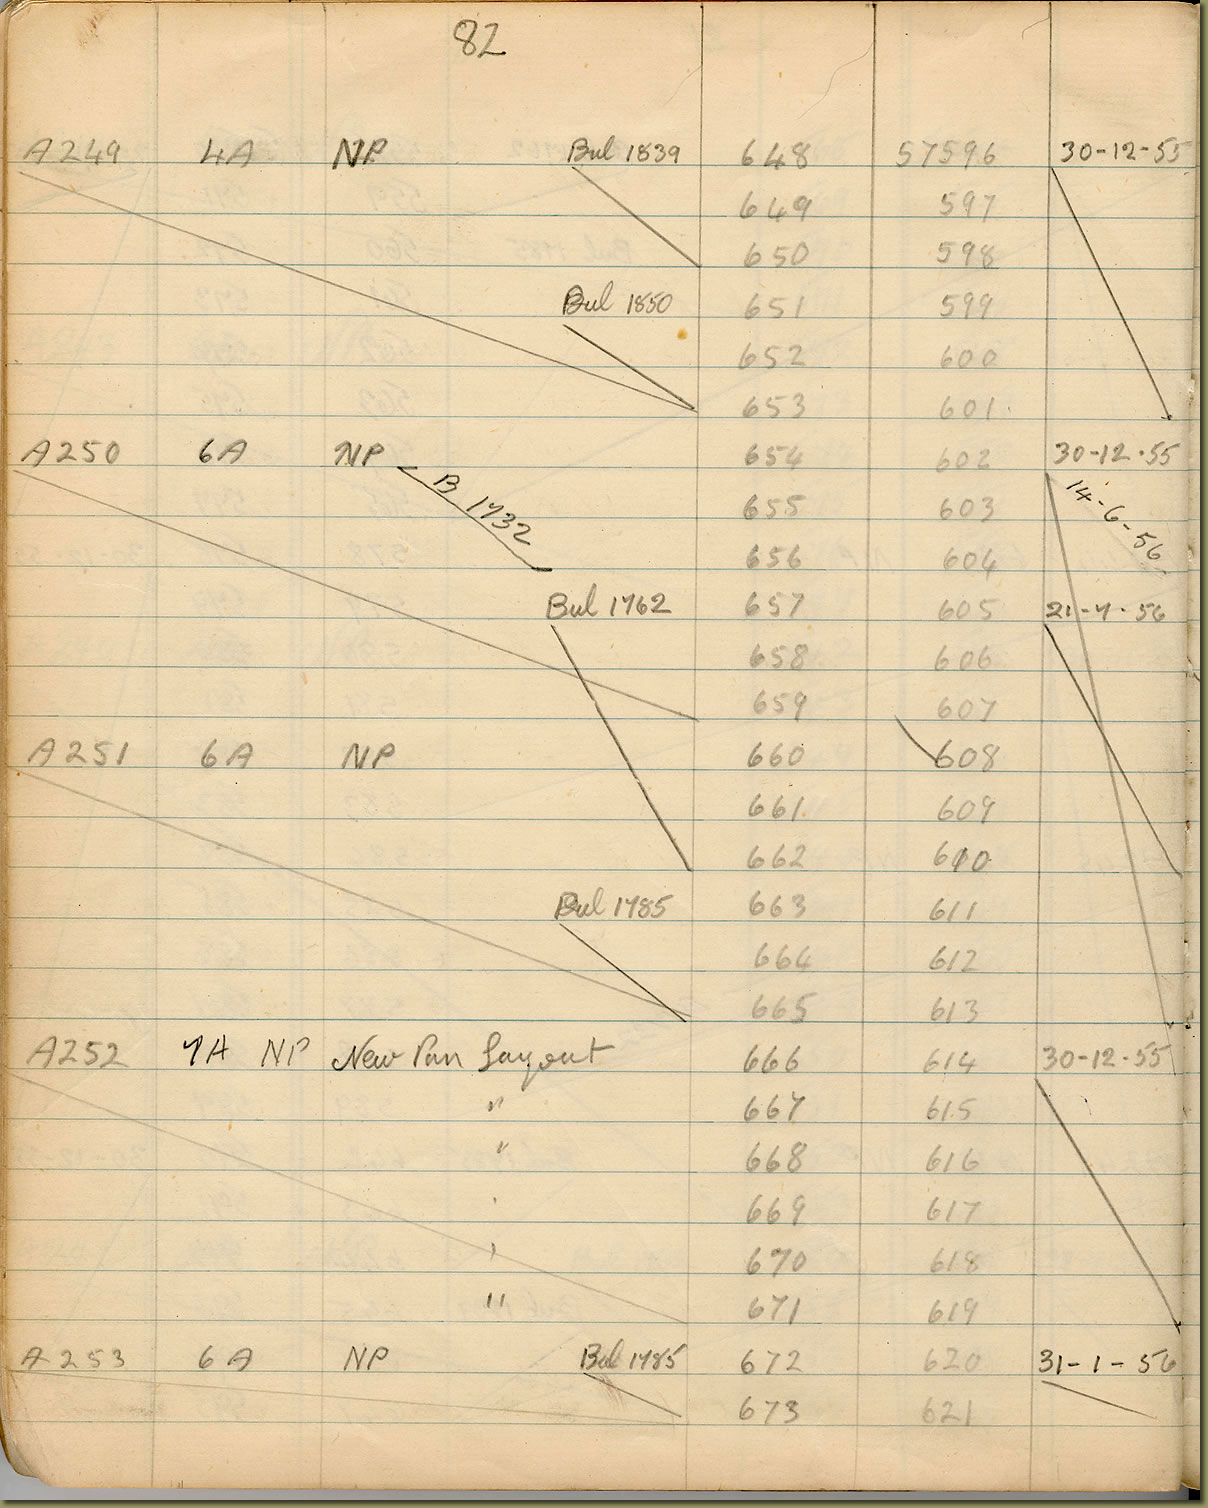 82
A249 4A NP Bul 1839 648 57596 30-12-55
649 597
650 598
Bul 1850 651 599
652 600
653 601
A250 6A NP 654 602 30-12-55
B 1732 655 603 14-6-56
656 604
Bul 1762 657 605 21-7-56
658 606
659 607
A251 6A NP 660 608
661 609
662 610
Bul 1785 663 611
664 612
665 613
A252 7A NP New Pan Layout 666 614 30-12-55
" 667 615
" 668 616
669 617
670 618
" 671 619
A253 6A NP Bul 1785 672 620 31-1-56
673 621